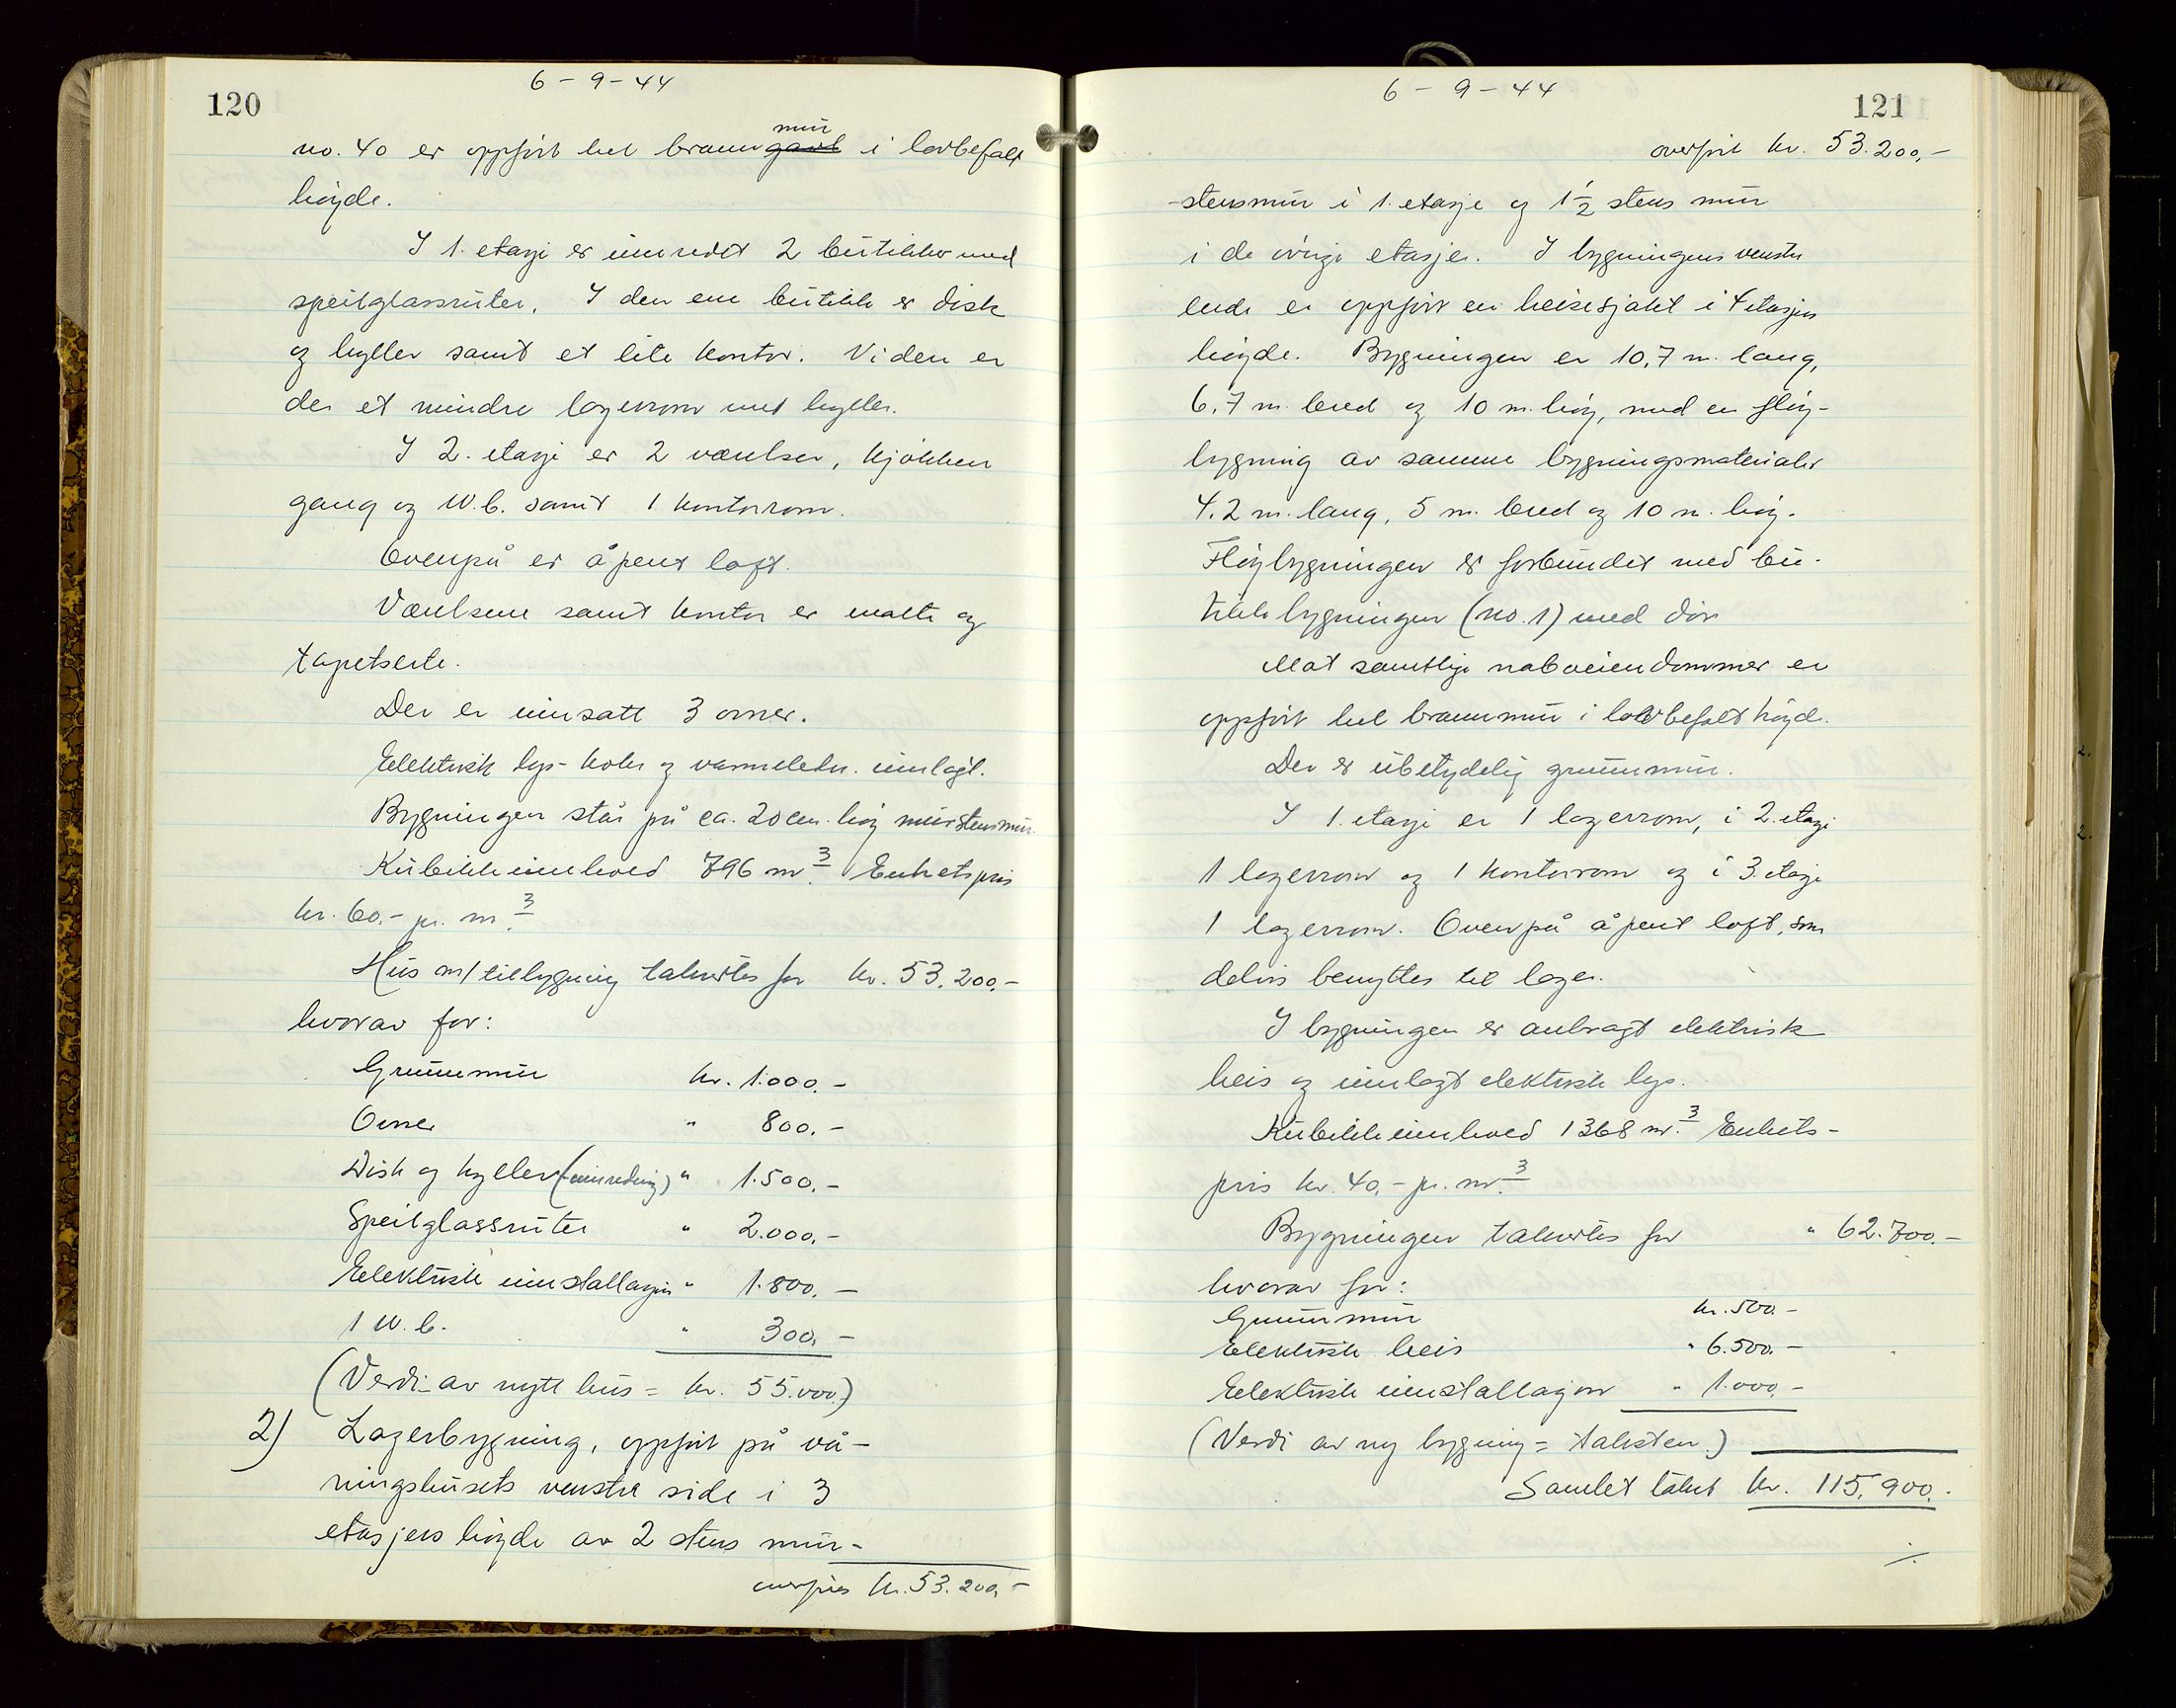 120
6 - 9 - 44
mur
no. 40 er oppført hel branngavl i lovbefalt
høyde.
I 1. etasje er innredet 2 butikker med
speilglassruter. I den ene butikk er disk
og hyller samt et lite kontor. Viden er
der et mindre lagerrom med hyller.
I 2. etasje er 2 værelser, kjøkken
gang og W.C. samt 1 kontorrom.
Ovenpå er åpent loft.
Værelsene samt kontor er malte og
tapetserte.
Der er innsatt 3 ovner.
Elektrisk lys- koke og varmeledn. innlagt.
Bygningen står på ca. 20 cm. høy murstensmur.
Kubikkinnhold 796 m.3 Enhetspris
kr. 60.- pr. m.3
Hus m/tilbygning takseres for kr. 53.200.-
hvorav for:
Grunnmur kr. 1.000.-
Ovner " 800.-
Disk og hyller (innredning) " 1.500.-
Speilglassruter " 2.000.-
Elektrisk innstallasjon " 1.800.-
1 W.C. " 300.-
(Verdi av nytt hus = kr. 55.000.)
2) Lagerbygning, oppført på vå-
ningshusets venstre side i 3
etasjers høyde av 2 stens mur-
overføres kr. 53.200,-
6 - 9 - 44
121
overført kr. 53.200,-
-stensmur i 1. etasje og 1 1/2 stens mur
i de øvrige etasjer. I bygningens venstre
ende er oppført en heisesjakt i 4 etasjers
høyde. Bygningen er 10,7 m. lang,
6,7 m. bred og 10 m. høy, med en fløy-
bygning av samme bygningsmaterialer
4.2 m. lang, 5 m. bred og 10 m. høy.
Fløybygningen er forbundet med bu-
tikkbygningen (no. 1) med dør
Mot samtlige naboeiendommer er
oppført hel brannmur i lovbefalt høyde.
Der er ubetydelig grunnmur.
I 1. etasje er 1 lagerrom, i 2. etasje
1 lagerrom og 1 kontorrom og i 3. etasje
1 lagerrom. Ovenpå åpent loft, som
delvis benyttes til lager.
I bygningen er anbragt elektrisk
heis og innlagt elektrisk lys.
Kubikkinnhold 1368 m.3 Enhets-
pris kr. 40,- pr. m.3
Bygningen takseres for " 62.700.-
hvorav for:
Grunnmur kr. 500.-
Elektrisk heis " 6.500.-
Elektrisk innstallasjon " 1.000.-
(Verdi av ny bygning = taksten.)
Samlet takst kr. 115.900.-
./.